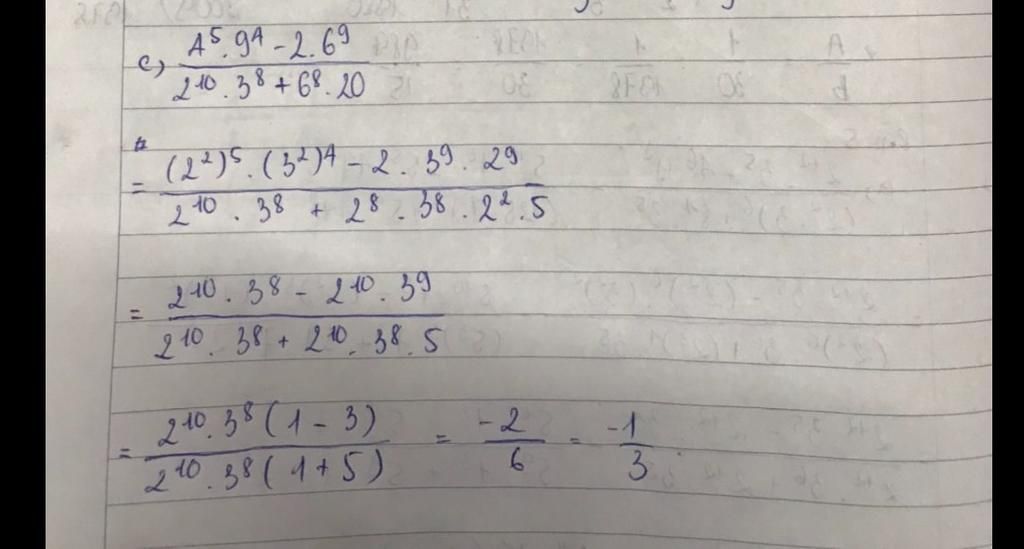 c) \frac{4^5 . 9^4 - 2 . 6^9}{2^{10} . 3^8 + 6^8 . 20}
= \frac{(2^2)^5 . (3^2)^4 - 2 . 3^9 . 2^9}{2^{10} . 3^8 + 2^8 . 3^8 . 2^2 . 5}
= \frac{2^{10} . 3^8 - 2^{10} . 3^9}{2^{10} . 3^8 + 2^{10} . 3^8 . 5}
= \frac{2^{10} . 3^8 (1 - 3)}{2^{10} . 3^8 (1 + 5)} = \frac{-2}{6} = \frac{-1}{3}